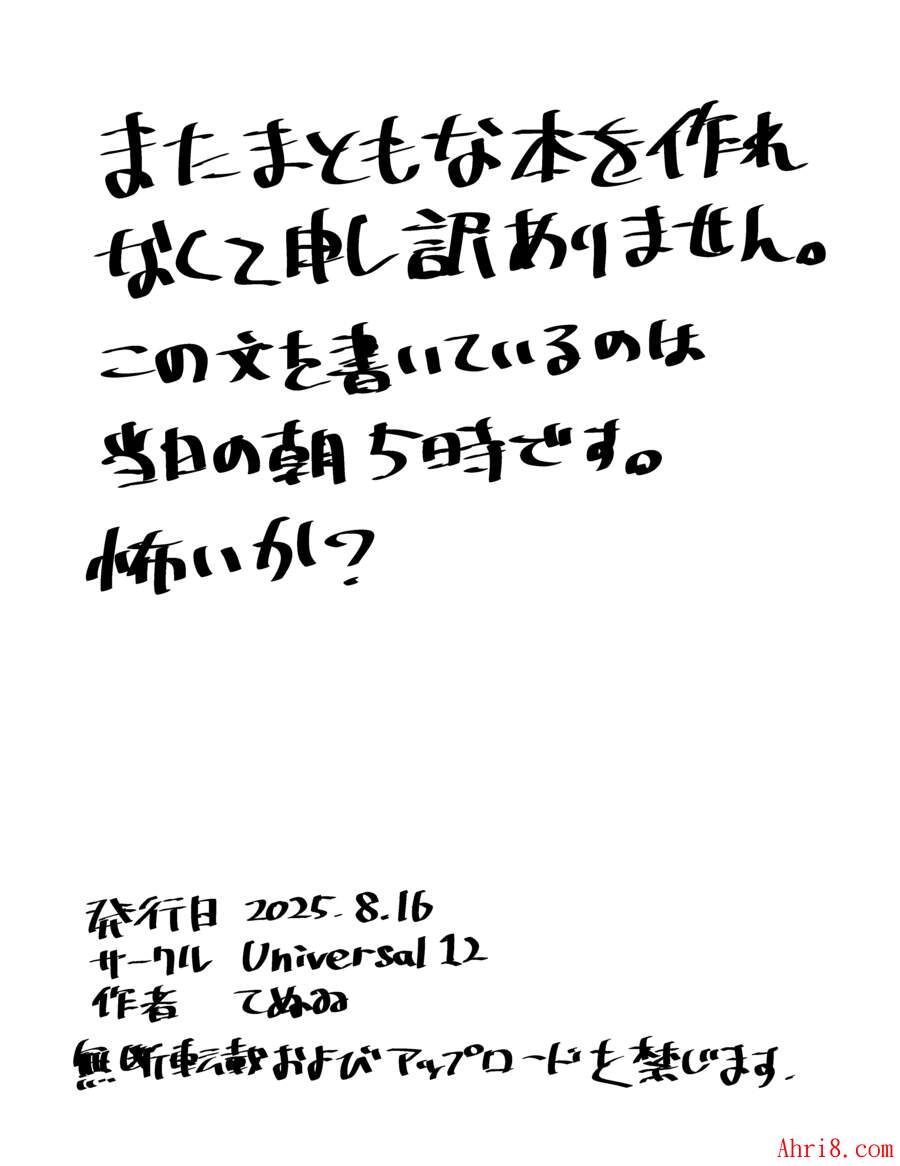 またまともな本を作れ
なくて申し訳ありません。
この文を書いているのは
当日の朝5時です。
怖いかし?
発行日 2025.8.16
サークル Universal 12
作者 てぬゐ
無断転載およびアップロードを禁じます.
Ahri8.com